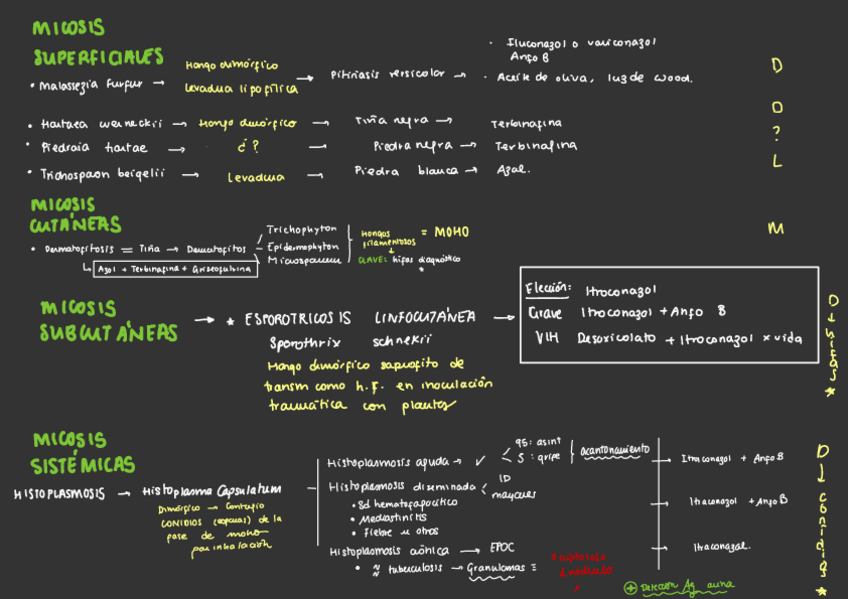 MICOSIS
SUPERFICIALES
• Malassezia furfur → Hongo dimórfico
Levadura lipofílica
→ Pitiriasis versicolor →
• Fluconazol o variconazol
Anfo B
• Aceite de oliva, luz de wood.
D
• Hortaea werneckii → Hongo dimórfico → Tiña negra → Terbinafina
O
• Piedraia hortae → ¿? → Piedra negra → Terbinafina
?
• Trichospaon beigelii → Levadura → Piedra blanca → Azol.
L
MICOSIS
CUTÁNEAS
M
• Dermatofitosis = Tiña → Dermatofitos
Trichophyton
Epidermophyton
Microsporum
Hongos
filamentosos
= MOHO
CLAVE: hifas diagnóstico
*
↳ Azol + Terbinafina + Griseofulvina
MICOSIS
SUBCUTÁNEAS
→ * ESPOROTRICOSIS LINFOCUTÁNEA →
Sporothrix schnekii
Hongo dimórfico saprofito de
transm como h.F. en inoculación
traumática con plantas
Elección: Itroconazol
Grave Itroconazol + Anfo B
VIH Desoxicolato + Itroconazol x vida
D
*
MICOSIS
SISTÉMICAS
HISTOPLASMOSIS → Histoplasma Capsulatum
Dimórfico → Contagio
CONIDIOS (esporas) de la
fase de moho
por inhalación
Histoplasmosis aguda → ✓
95: asint
5: gripe
acantonamiento
Itraconazol + Anfo B
Histoplasmosis diseminada
ID
mayores
• Sd hematofagocítico
• Mediastinitis
• Fiebre u otros
Itraconazol + Anfo B
Histoplasmosis crónica → EPOC
• ≈ tuberculosis → Granulomas ≡
Itraconazol.
⊕ Detección Ag orina
D
↓
*